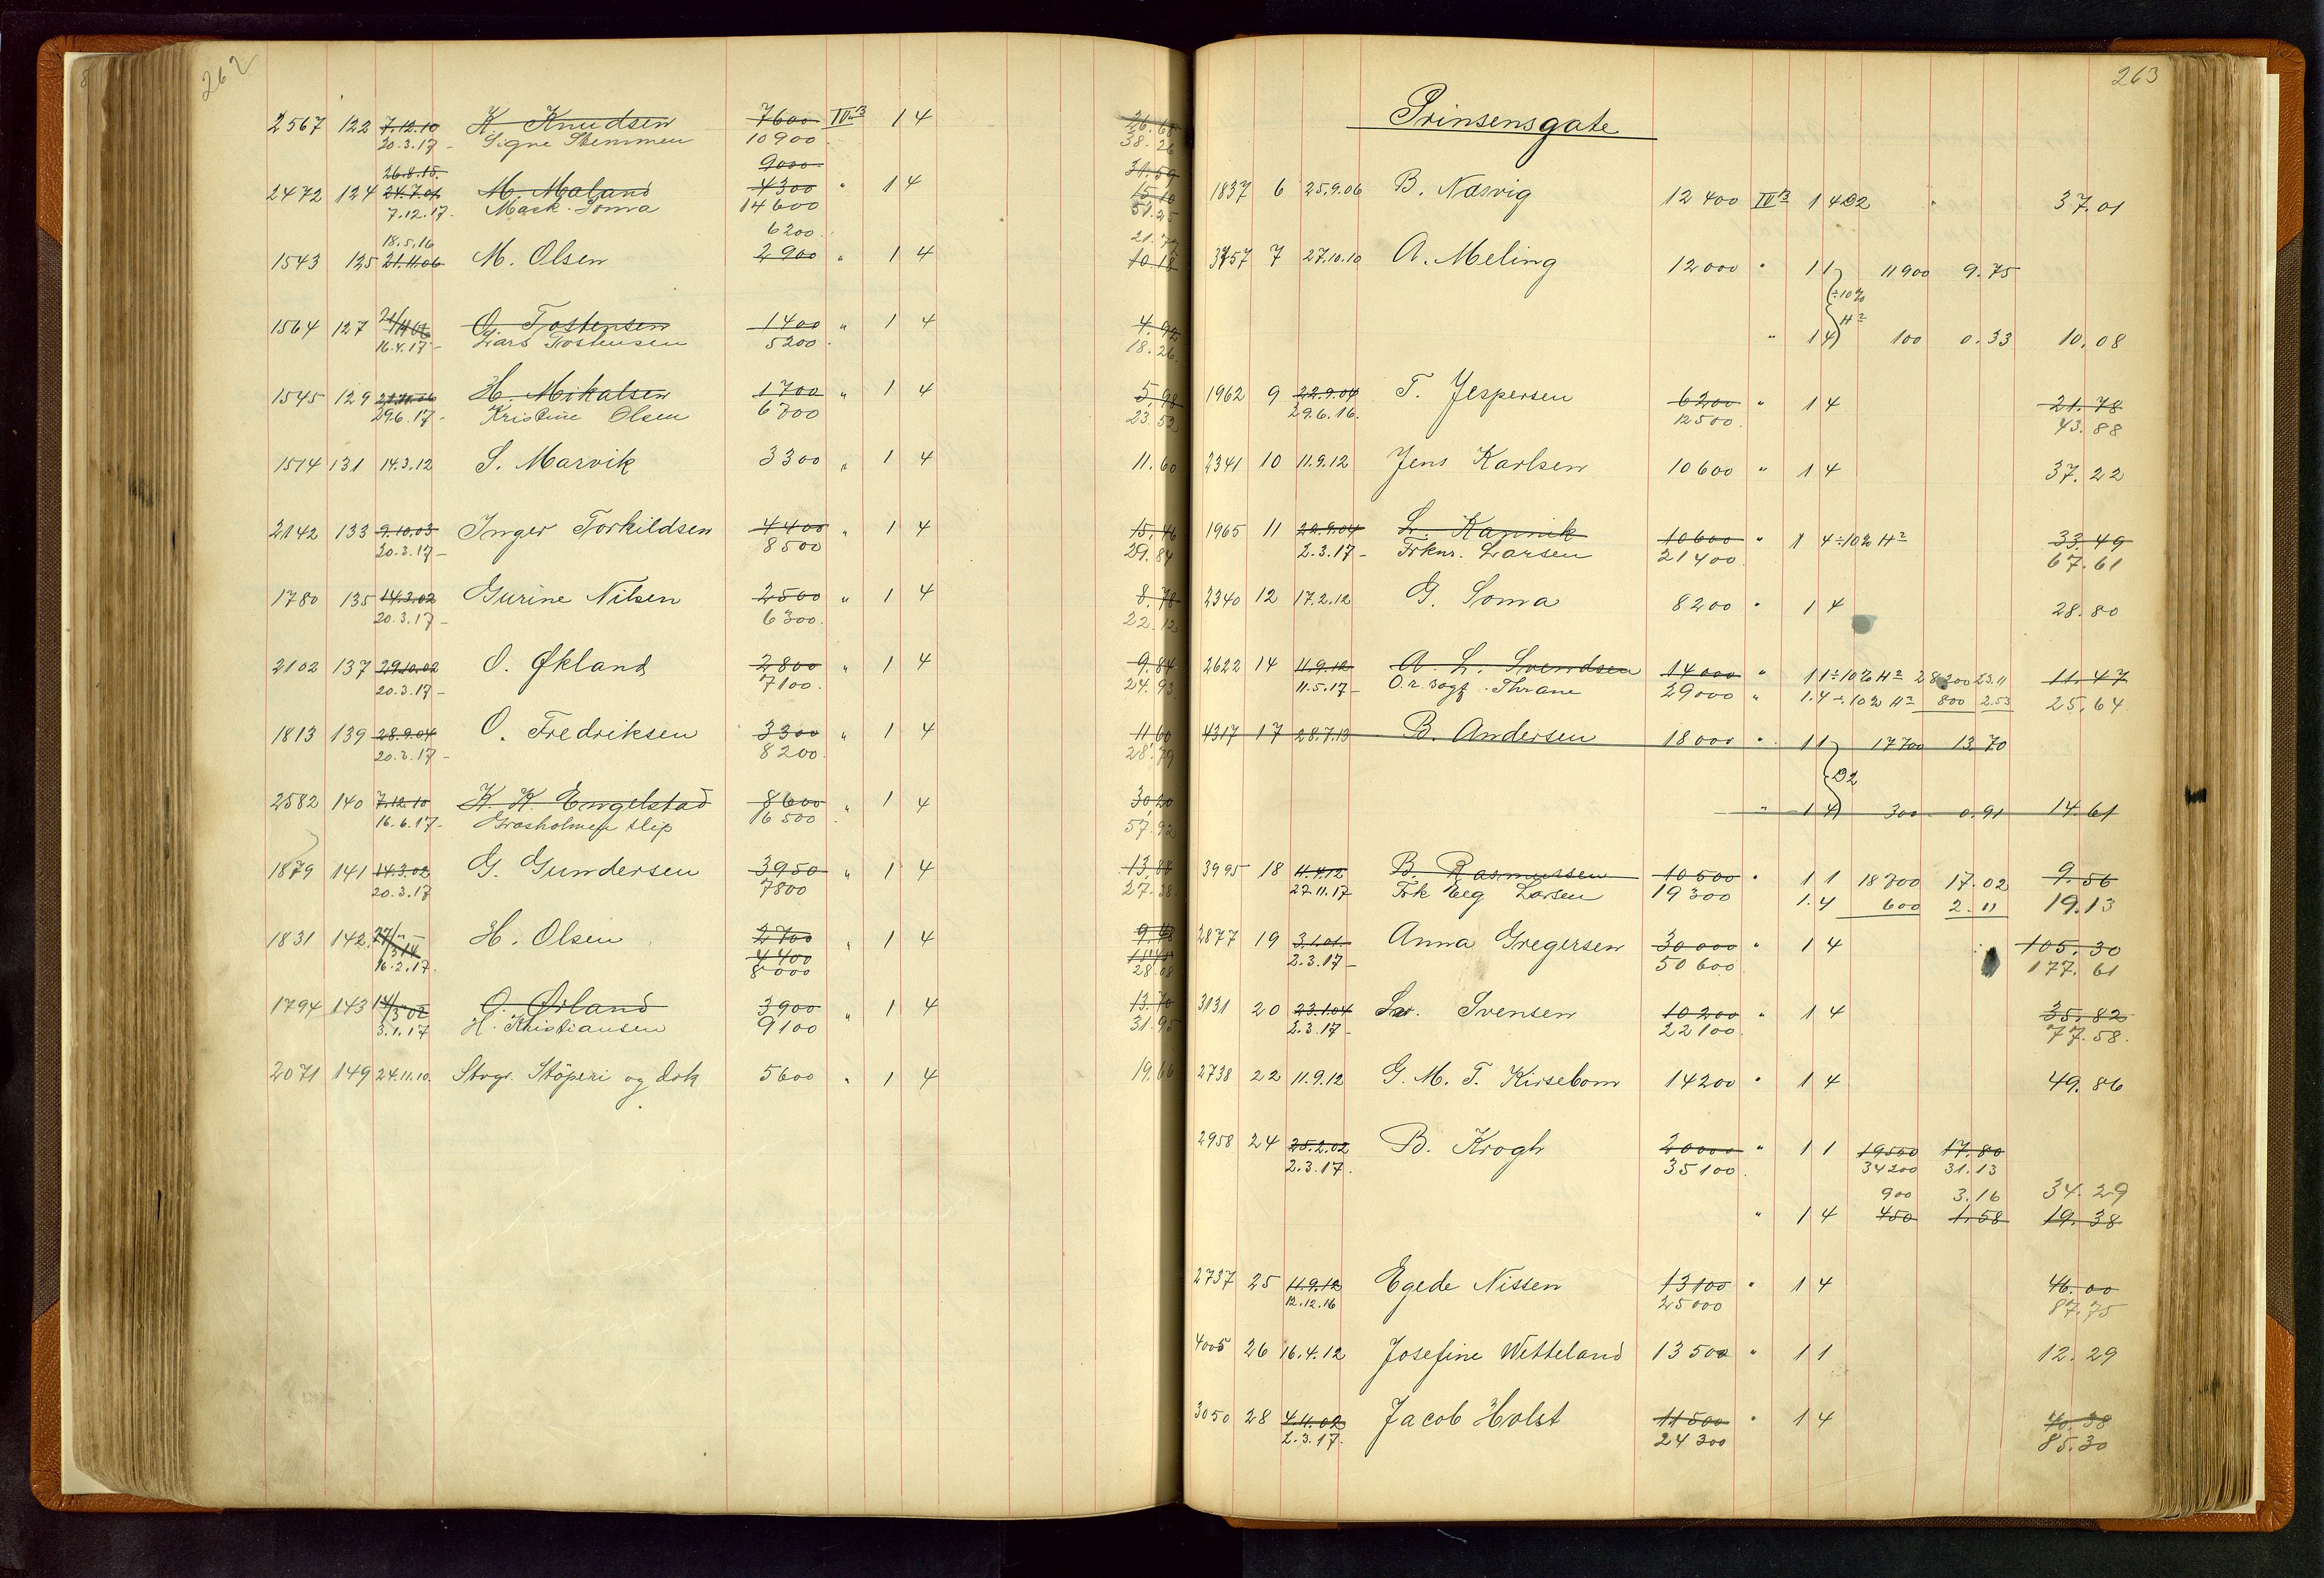 262
2567 122 7.12.10 K. Knudsen 7600 IV B 1 4 26.68
20.3.17 Signe Stemmen 10900 38.26
26.8.15. 9000 31.59
2472 124 24.7.01 M. Maland 4300 " 1 4 15.10
7.12.17. Mask. Soma 14600 51.25
18.5.16 6200 21.77
1543 125 21.11.06 M. Olsen 2900 " 1 4 10.18
1564 127 21/11 06 O. Tostensen 1400 " 1 4 4.92
16.4.17 Lars Tostensen 5200 18.26
1545 129 21.11.06 H. Mikalsen 1700 " 1 4 5,98
29.6.17 Kristine Olsen 6700 23.52
1514 131 14.3.12 S. Marvik 3300 " 1 4 11.60
2142 133 9.10.03 Inger Torkildsen 4400 " 1 4 15,46
20.3.17 8500 29.84
1780 135 14.3.02 Gurine Nilsen 2500 " 1 4 8.78
20.3.17 6300 22.12
2102 137 29.10.02 O. Økland 2800 " 1 4 9.84
20.3.17 7100 24.93
1813 139 28.9.04 O. Fredriksen 3300 " 1 4 11.60
20.3.17 8200 28.79
2582 140 7.12.10 K. K. Engelstad 8600 " 1 4 30.20
16.6.17 Grasholmen slip 16500 57.92
1879 141 14.3.02 G. Gundersen 3950 " 1 4 13,88
20.3.17 7800 27.38
1831 142 H. Olsen 2700 " 1 4 9.48
4400
16.2.17. 8000 28.08
1794 143 14/3 02 O. Ørland 3900 " 1 4 13.70
3.1.17 H. Kristiansen 9100 31.95
2071 149 24.11.10. Stvgr. Støperi og dok 5600 " 1 4 19.66
263
Prinsensgate
1837 6 25.9.06 B. Næsvig 12400 IV B 1 4 D2 37.01
3457 7 27.10.10 A. Meling 12000 " 1 1 11900 9.75
÷10%
H2
" 1 4 100 0.33 10.08
1962 9 22.9.04 T. Jespersen 6200 " 1 4 21.78
29.6.16. 12500 43.88
2341 10 11.9.12 Jens Karlsen 10600 " 1 4 37.22
1965 11 22.9.04 L. Kannik 10600 " 1 4 ÷10% H2 33.49
2.3.17 Frknr. Larsen 21400 67.61
2340 12 17.2.12 G. Soma 8200 " 1 4 28.80
2622 14 11.9.12 A. L. Svendsen 14000 " 1 1 ÷10% H2 28200 23.11 11.47
11.5.17 O.r. sagf. Thrane 29000 " 1.4 ÷.10% H2 800 2.53 25.64
4317 17 28.7.13 B. Andersen 18000 " 1 1 17700 13.70
D2
" 1 4 300 0.91 14.61
3995 18 11.4.12 B. Rasmussen 10500 " 1 1 18700 17.02 9.56
27.11.17 Frk Eeg Larsen 19300 1.4 600 2.11 19.13
2877 19 3.1.01 Anna Gregersen 30000 " 1 4 105.30
2.3.17 50600 177.61
3131 20 23.1.04 Sv. Svensen 10200 " 1 4 35.82
2.3.17 22100 77.58
2738 22 11.9.12 G. M. T. Kirsebom 14200 " 1 4 49.86
2958 24 25.2.02 B. Krogh 20000 " 1 1 19550 17.80
2.3.17. 35100 34200 31.13
900 3.16 34.29
" 1 4 450 1.58 19.38
2737 25 11.9.12 Egede Nissen 13100 " 1 4 46.00
12.12.16 25000 87.75
4005 26 16.4.12 Josefine Wetteland 13500 " 1 1 12.29
3050 28 4.11.02 Jacob Holst 11500 " 1 4 40.38
2.3.17. 24300 85.30